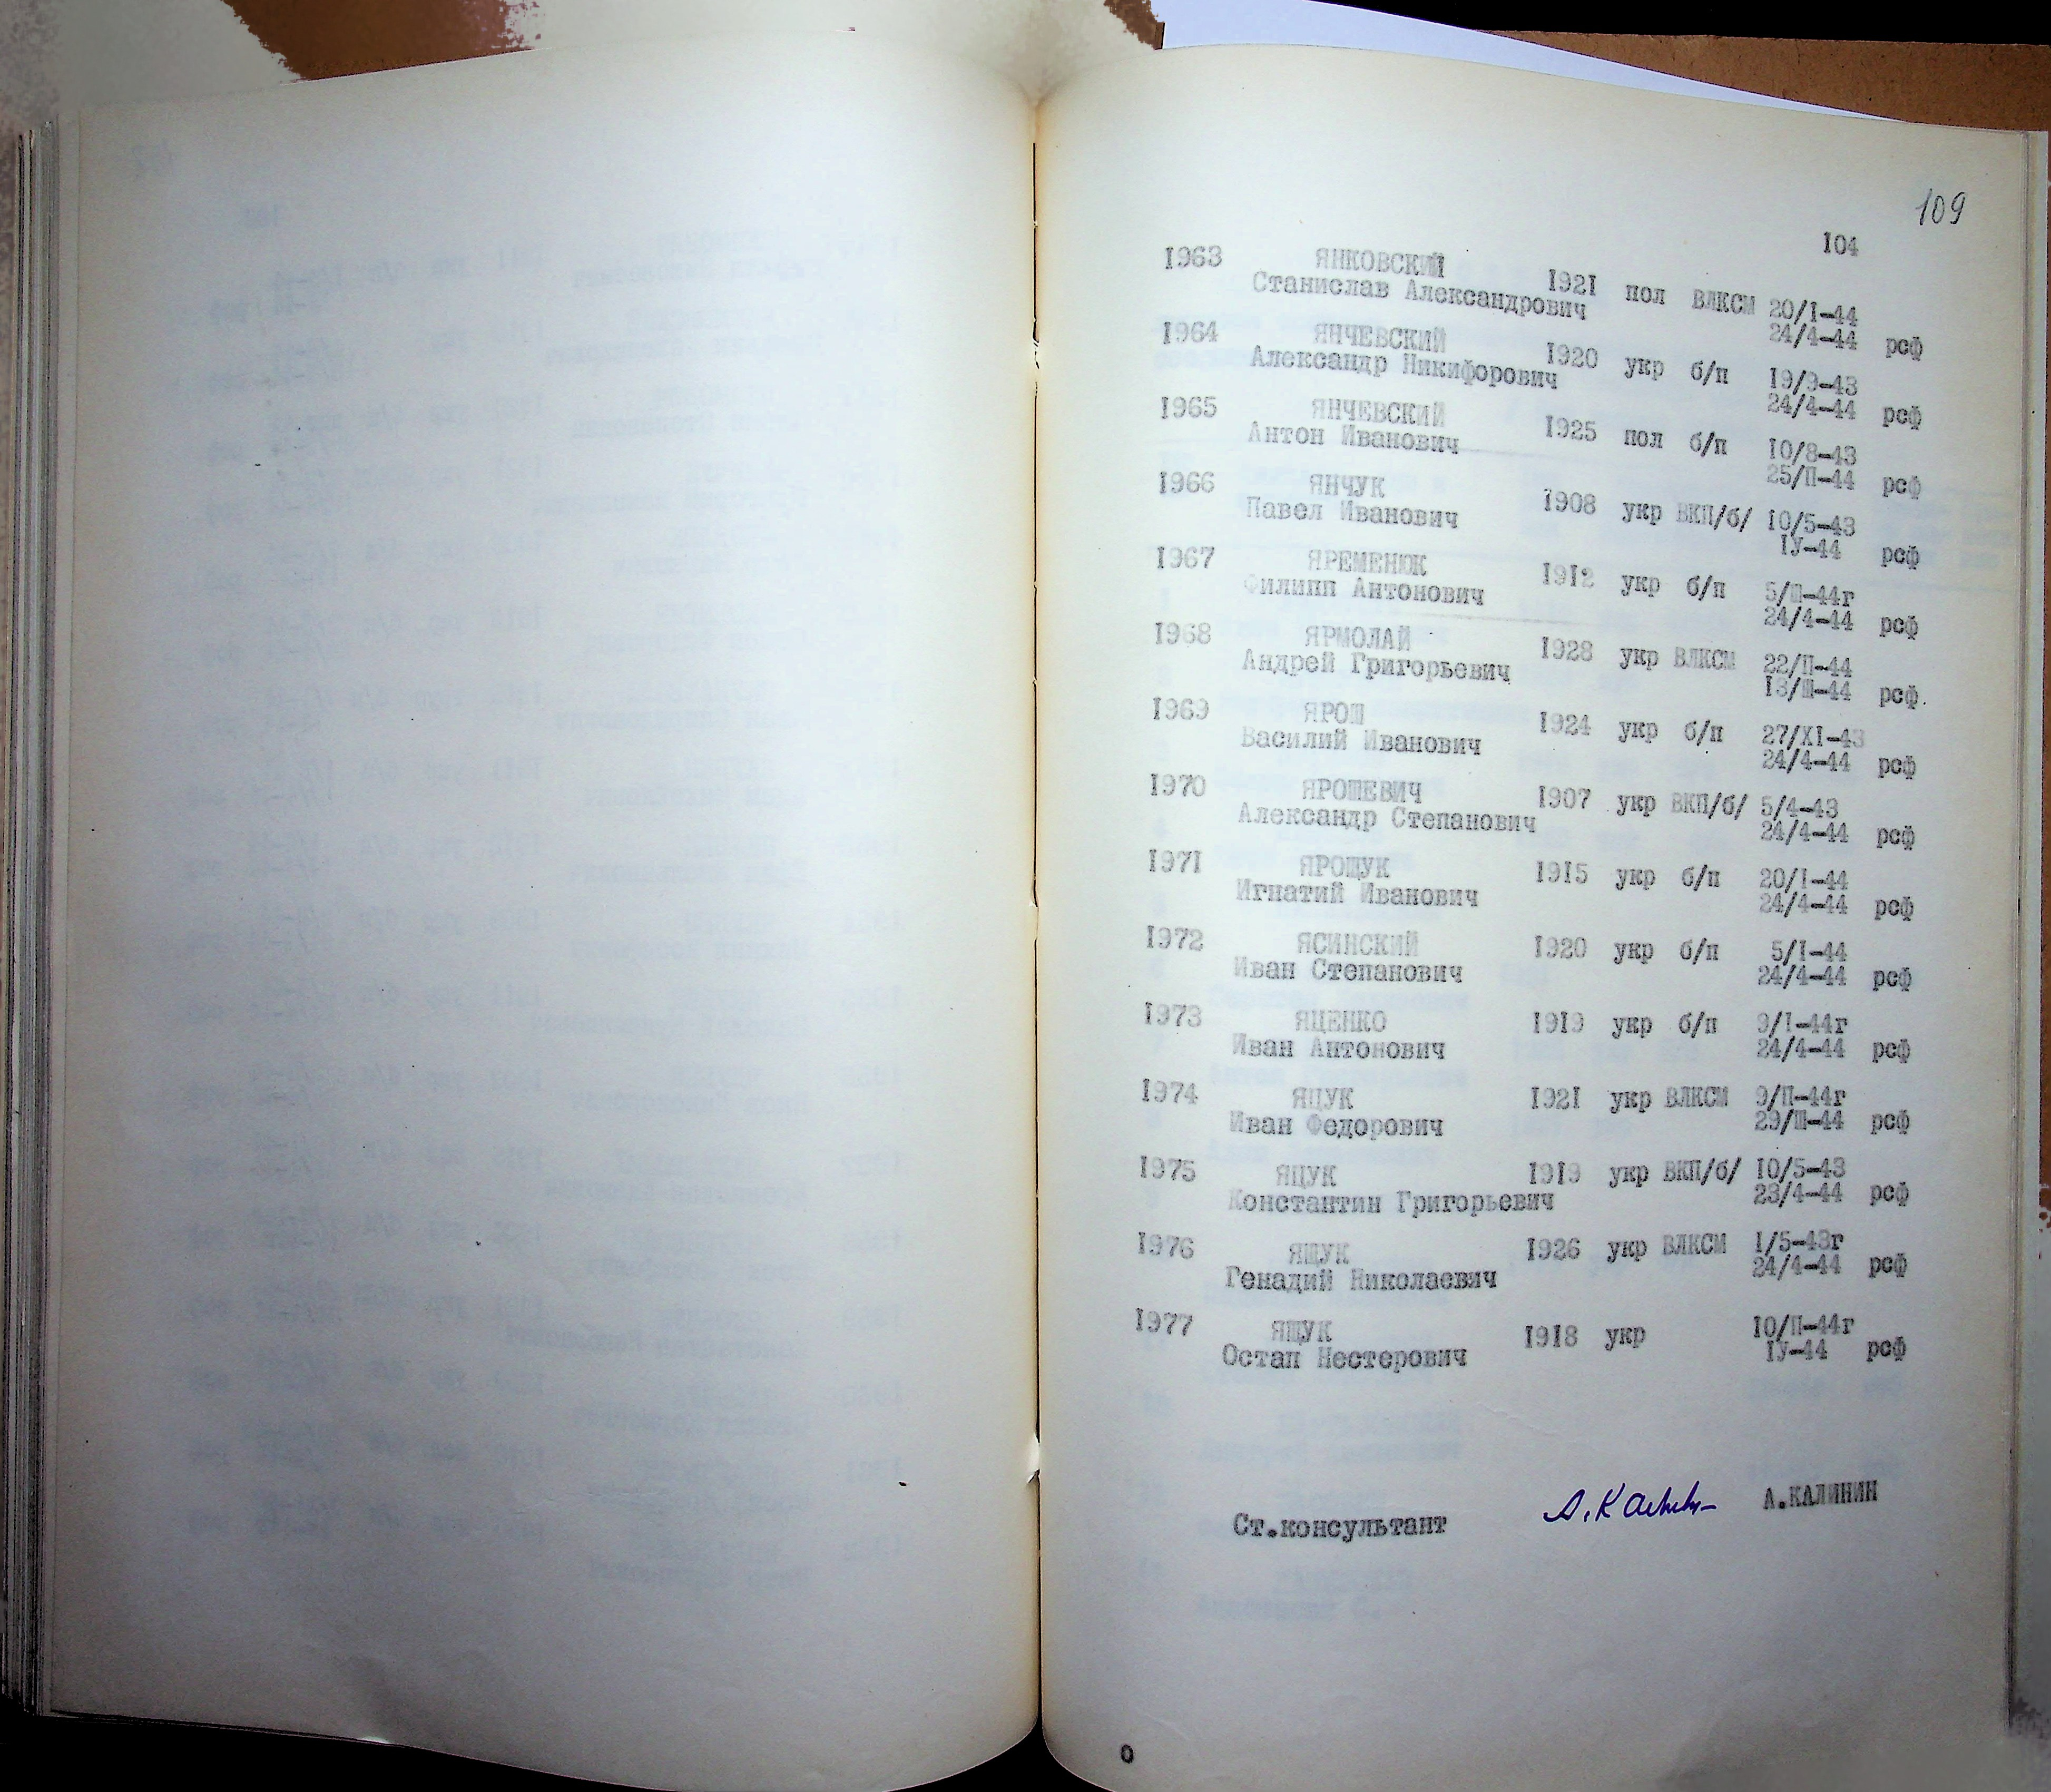 109
104
1963 ЯНКОВСКИЙ
Станислав Александрович 1921 пол ВЛКСМ 20/I-44
24/4-44 рсф
1964 ЯНЧЕВСКИЙ
Александр Никифорович 1920 укр б/п 19/9-43
24/4-44 рсф
1965 ЯНЧЕВСКИЙ
Антон Иванович 1925 пол б/п 10/8-43
25/П-44 рсф
1966 ЯНЧУК
Павел Иванович 1908 укр ВКП/б/ 10/5-43
IУ-44 рсф
1967 ЯРЕМЕНЮК
Филипп Антонович 1912 укр б/п 5/Ш-44г
24/4-44 рсф
1968 ЯРМОЛАЙ
Андрей Григорьевич 1928 укр ВЛКСМ 22/П-44
13/Ш-44 рсф.
1969 ЯРОШ
Василий Иванович 1924 укр б/п 27/XI-43
24/4-44 рсф
1970 ЯРОШЕВИЧ
Александр Степанович 1907 укр ВКП/б/ 5/4-43
24/4-44 рсф
1971 ЯРОЩУК
Игнатий Иванович 1915 укр б/п 20/I-44
24/4-44 рсф
1972 ЯСИНСКИЙ
Иван Степанович 1920 укр б/п 5/I-44
24/4-44 рсф
1973 ЯЦЕНКО
Иван Антонович 1919 укр б/п 9/I-44г
24/4-44 рсф
1974 ЯЦУК
Иван Федорович 1921 укр ВЛКСМ 9/П-44г
29/Ш-44 рсф
1975 ЯЦУК
Константин Григорьевич 1919 укр ВКП/б/ 10/5-43
23/4-44 рсф
1976 ЯЩУК
Генадий Николаевич 1926 укр ВЛКСМ I/5-43г
24/4-44 рсф
1977 ЯЩУК
Остап Нестерович 1918 укр 10/П-44г
IУ-44 рсф
Ст.консультант А.Калинин А.КАЛИНИН